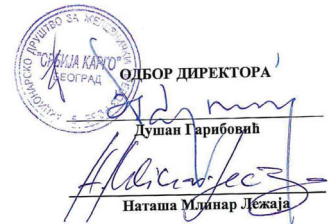 АКЦИОНАРСКО ДРУШТВО ЗА ЖЕЛЕЗНИЧКИ
"СРБИЈА КАРГО"
БЕОГРАД
ОДБОР ДИРЕКТОРА
Душан Гарибовић
Наташа Млинар Лежаја